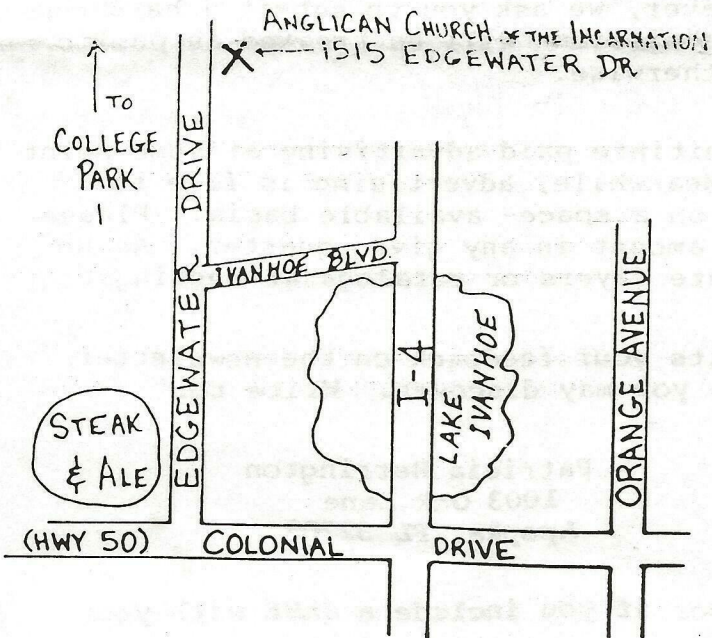 ANGLICAN CHURCH OF THE INCARNATION
X ← 1515 EDGEWATER DR
TO
COLLEGE
PARK
EDGEWATER DRIVE
IVANHOE BLVD.
I 4
LAKE
IVANHOE
ORANGE AVENUE
STEAK
& ALE
(HWY 50) COLONIAL DRIVE